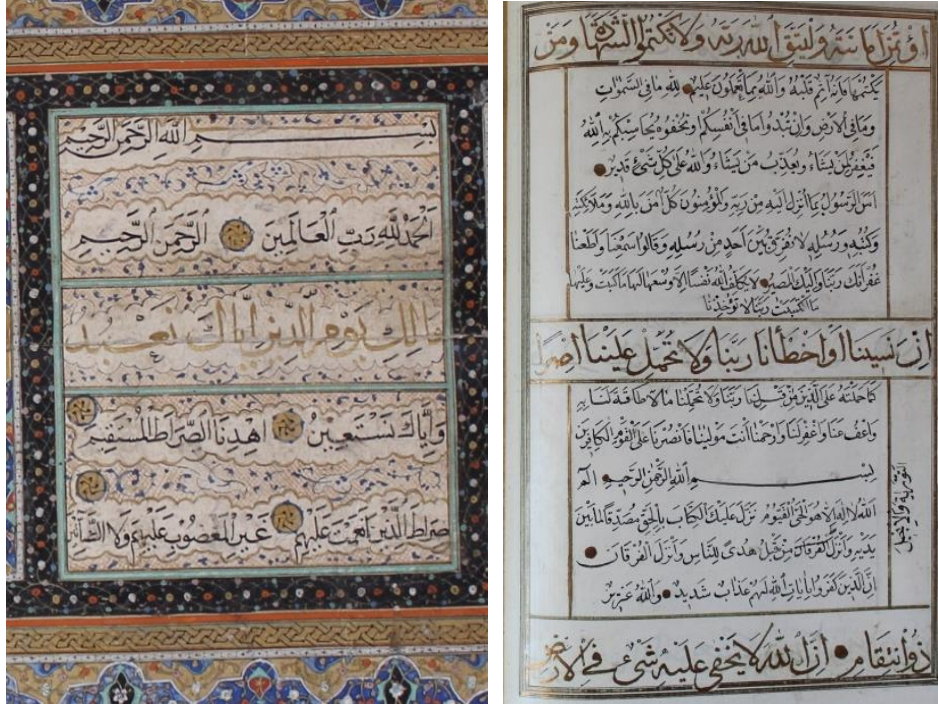 بِسْمِ اللهِ الرَّحْمٰنِ الرَّحِيمِ
الْحَمْدُ لِلّٰهِ رَبِّ الْعَالَمِينَ الرَّحْمٰنِ الرَّحِيمِ
مالك يوم الدين اياك نعبد
وَاِيَّاكَ نَسْتَعِينُ اهْدِنَا الصِّرَاطَ الْمُسْتَقِيمَ
صِرَاطَ الَّذِينَ اَنْعَمْتَ عَلَيْهِمْ غَيْرِ الْمَغْضُوبِ عَلَيْهِمْ وَلَا الضَّالِّينَ
اؤتمن امانته وليتق الله ربه ولا تكتموا الشهادة ومن
يكتمها فانه آثم قلبه والله بما تعملون عليم لله ما في السموات
وما في الارض وان تبدوا ما في انفسكم او تخفوه يحاسبكم به الله
فيغفر لمن يشاء ويعذب من يشاء والله على كل شيء قدير
آمن الرسول بما انزل اليه من ربه والمؤمنون كل آمن بالله وملائكته
وكتبه ورسله لا نفرق بين احد من رسله وقالوا سمعنا واطعنا
غفرانك ربنا واليك المصير لا يكلف الله نفسا الا وسعها لها ما كسبت وعليها
ما اكتسبت ربنا لا تؤاخذنا
ان نسينا او اخطأنا ربنا ولا تحمل علينا اصرا
كما حملته على الذين من قبلنا ربنا ولا تحملنا ما لا طاقة لنا به
واعف عنا واغفر لنا وارحمنا انت مولينا فانصرنا على القوم الكافرين
بسم الله الرحمن الرحيم الم
الله لا اله الا هو الحي القيوم نزل عليك الكتاب بالحق مصدقا لما بين
يديه وانزل الفرقان من قبل هدى للناس وانزل الفرقان
التورية والانجيل
ان الذين كفروا بايات الله لهم عذاب شديد والله عزيز
ذو انتقام ان الله لا يخفى عليه شيء في الارض